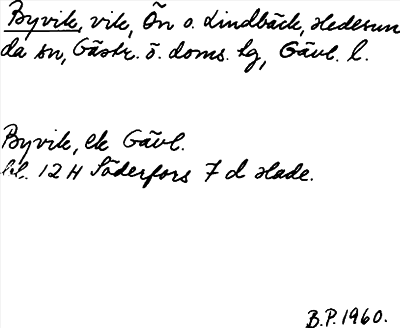 Byvik, vik, Ön o. Lindbäck, Hedesun
da sn, Gästr. ö. doms. lg, Gävl. l.
Byvik, ek Gävl.
bl. 12 H Söderfors 7 d Hade.
B.P. 1960.